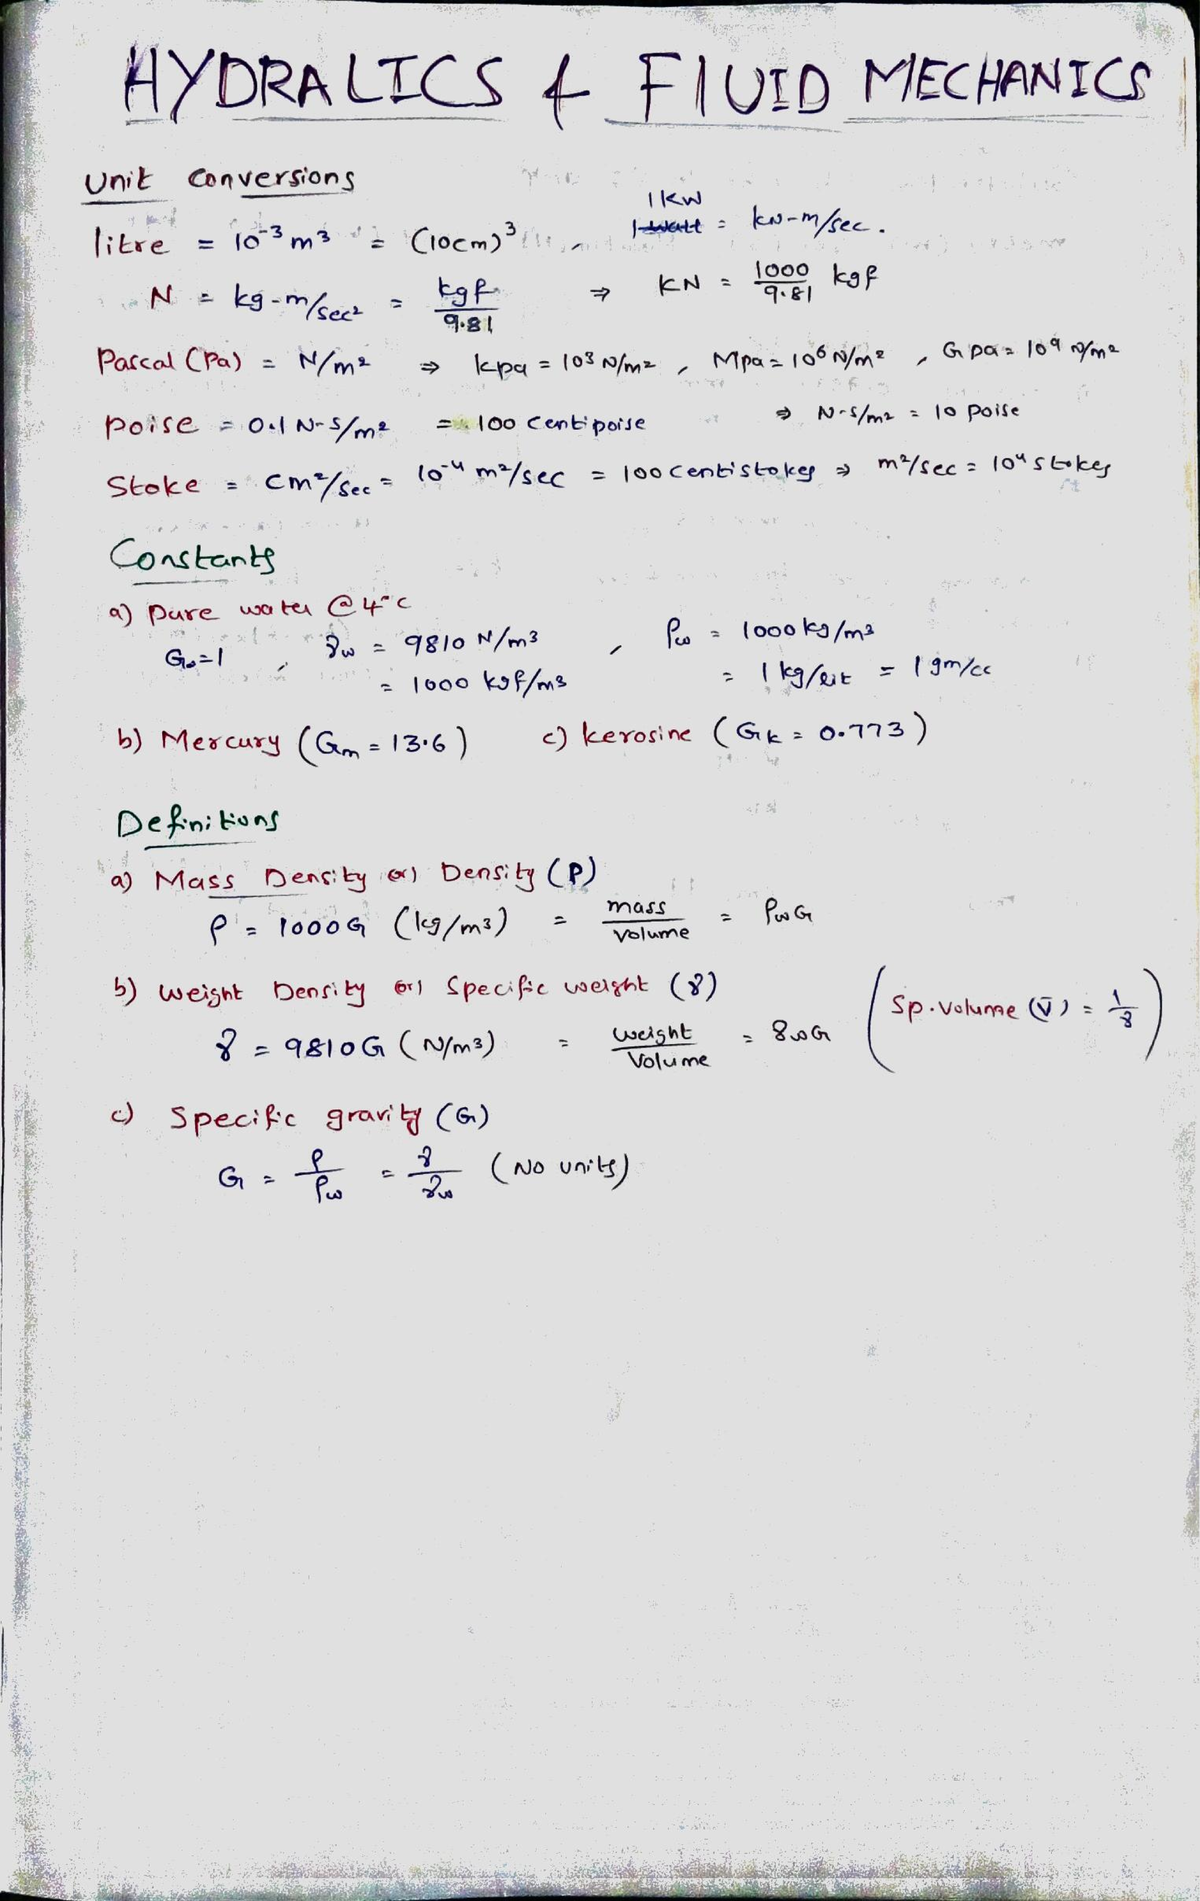 HYDRALICS & FLUID MECHANICS
Unit Conversions
litre = 10⁻³ m³ = (10cm)³ , 1 KW 1 watt = kN-m/sec.
N = kg-m/sec² = kgf/9.81 ⇒ KN = 1000/9.81 kgf
Pascal (Pa) = N/m² ⇒ kpa = 10³ N/m² , Mpa = 10⁶ N/m² , Gpa = 10⁹ N/m²
poise = 0.1 N-S/m² = 100 Centipoise ⇒ N-S/m² = 10 poise
Stoke = cm²/sec = 10⁻⁴ m²/sec = 100 centistokes ⇒ m²/sec = 10⁴ stokes
Constants
a) pure water @ 4°C
Gω=1 , γω = 9810 N/m³ , ρω = 1000 kg/m³
= 1000 kgf/m³ = 1 kg/lit = 1 gm/cc
b) Mercury (Gm = 13.6) c) kerosine (GK = 0.773)
Definitions
a) Mass Density (or) Density (ρ)
ρ = 1000G (kg/m³) = mass/volume = ρωG
b) weight Density (or) Specific weight (γ)
γ = 9810G (N/m³) = weight/Volume = γωG (Sp.volume (v̄) = 1/γ)
c) Specific gravity (G)
G = ρ/ρω = γ/γω (No units)